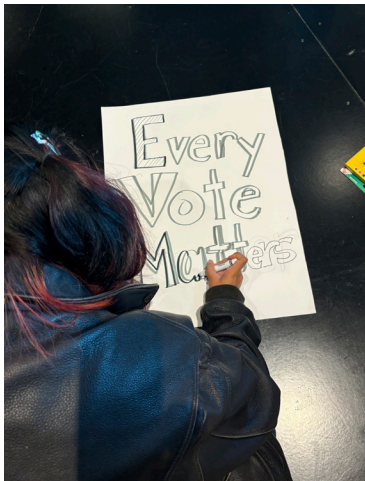 Every
Vote
Matters